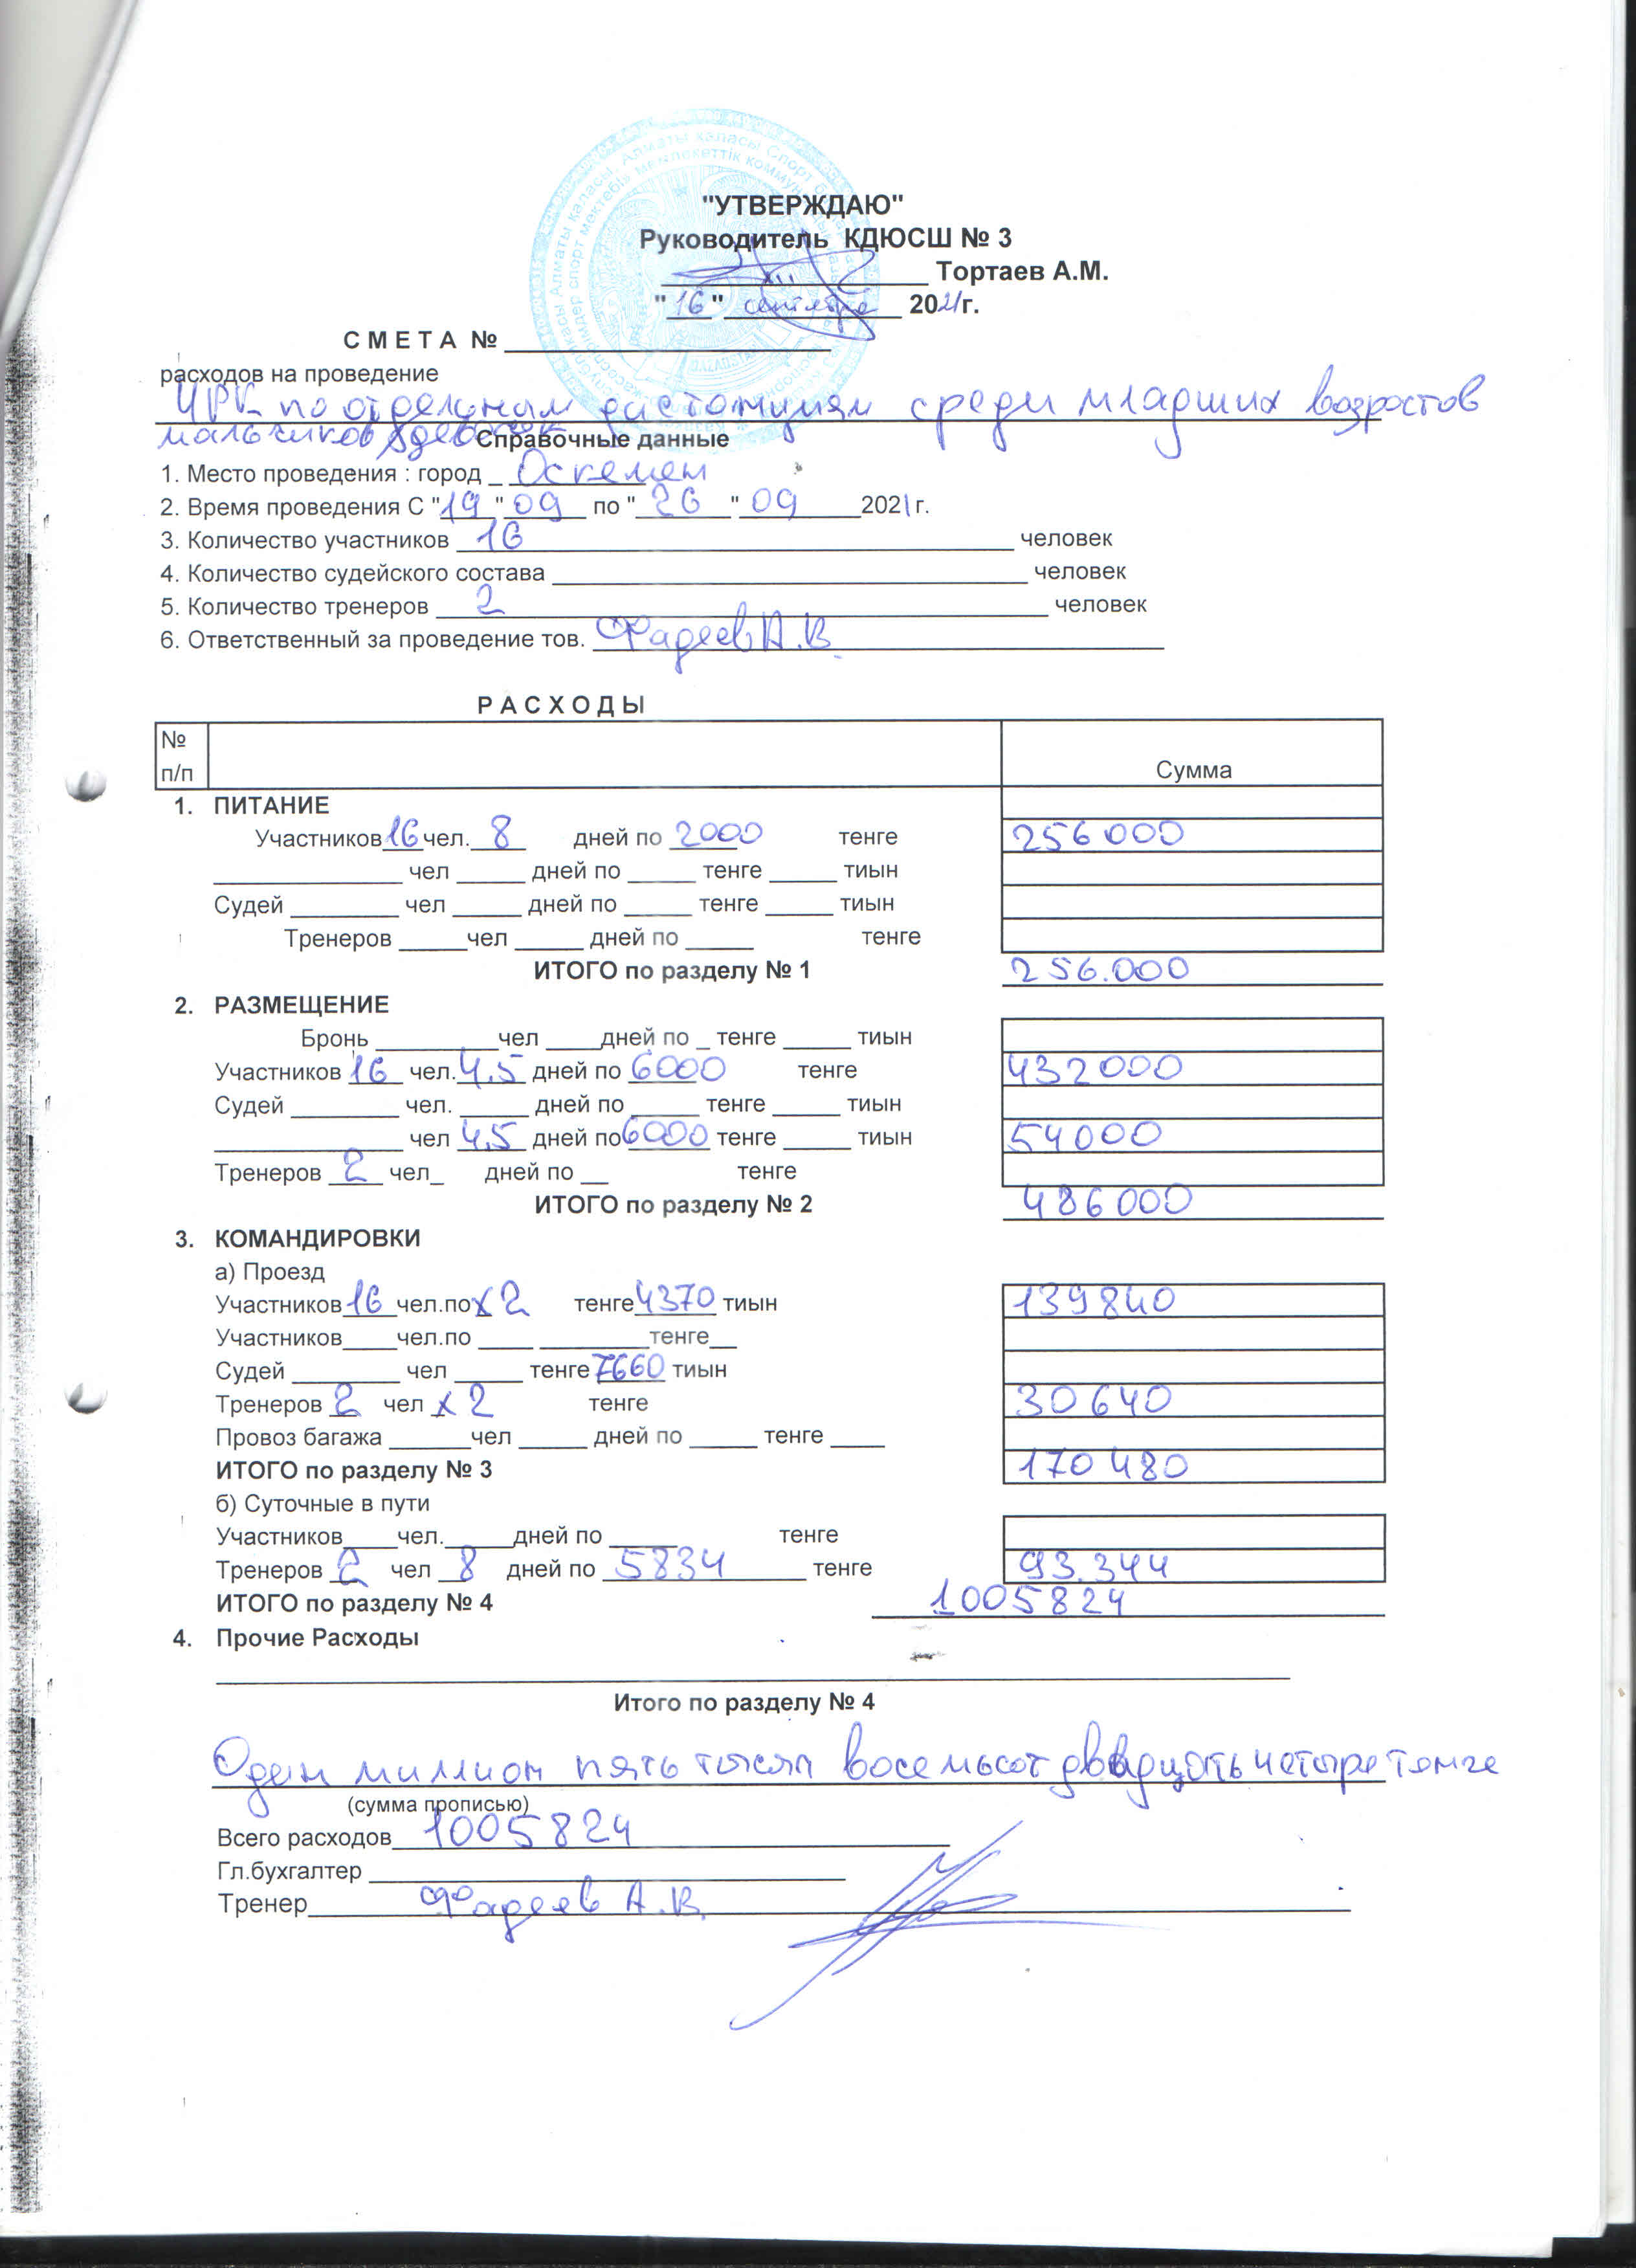 "УТВЕРЖДАЮ"
Руководитель КДЮСШ № 3
____________ Тортаев А.М.
"16" сентября 2021г.
С М Е Т А № ____________
расходов на проведение
ЧРК по отдельным дистанциям среди младших возрастов
мальчиков девочек
Справочные данные
1. Место проведения : город _ Оскемен
2. Время проведения С "19" 09 по "26" 09 2021г.
3. Количество участников 16 человек
4. Количество судейского состава ____________ человек
5. Количество тренеров 2 человек
6. Ответственный за проведение тов. Фадеев А.В.
Р А С Х О Д Ы
№ п/п Сумма
1. ПИТАНИЕ
Участников 16 чел. 8 дней по 2000 тенге 256000
____________ чел _____ дней по _____ тенге _____ тиын
Судей ________ чел _____ дней по _____ тенге _____ тиын
Тренеров _____чел _____ дней по _____ тенге
ИТОГО по разделу № 1 256.000
2. РАЗМЕЩЕНИЕ
Бронь _________чел ____дней по _ тенге _____ тиын
Участников 16 чел. 4,5 дней по 6000 тенге 432000
Судей ________ чел. _____ дней по _____ тенге _____ тиын
____________ чел 4,5 дней по 6000 тенге _____ тиын 54000
Тренеров 2 чел_ дней по __ тенге
ИТОГО по разделу № 2 486000
3. КОМАНДИРОВКИ
а) Проезд
Участников 16 чел.по x 2 тенге 4370 тиын 139840
Участников____чел.по ____ ________тенге__
Судей ________ чел _____ тенге 7660 тиын
Тренеров 2 чел x 2 тенге 30640
Провоз багажа ______чел _____ дней по _____ тенге ____
ИТОГО по разделу № 3 170480
б) Суточные в пути
Участников____чел._____дней по _____ тенге
Тренеров 2 чел 8 дней по 5834 тенге 93.344
ИТОГО по разделу № 4 1005824
4. Прочие Расходы
Итого по разделу № 4
Один миллион пять тысяч восемьсот двадцать четыре тенге
(сумма прописью)
Всего расходов 1005824
Гл.бухгалтер ____________
Тренер Фадеев А.В.